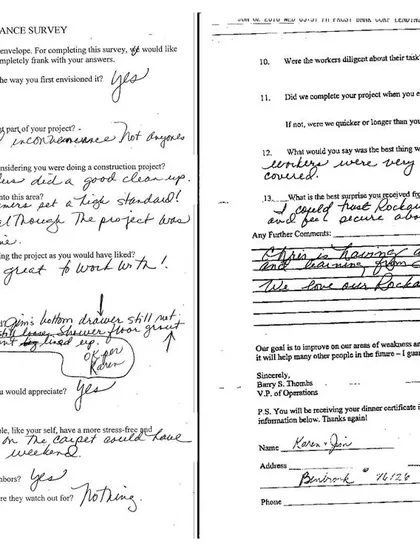 ANCE SURVEY
envelope. For completing this survey, we would like
mpletely frank with your answers.
the way you first envisioned it? Yes
part of your project?
inconvenience Not anyones
onsidering you were doing a construction project?
did a good clean up.
into this area?
set a high standard!
Though the project was
ing the project as you would have liked?
great to work with!
Jim's bottom drawer still not
shower floor grout
lined up.
OK per
Karen
ou would appreciate? Yes
ble, like your self, have a more stress-free and
on the carpet could have
weekend.
hbors? Yes
re they watch out for? Nothing.
10. Were the workers diligent about their task
11. Did we complete your project when you e
If not, were we quicker or longer than you
12. What would you say was the best thing w
workers were very
covered.
13. What is the best surprise you received fr
I could trust Rockwa
and feel secure abo
Any Further Comments:
Chris is having a
and learning from
We love our Rocka
Our goal is to improve on our areas of weakness an
it will help many other people in the future – I guar
Sincerely,
Barry S. Thombs
V.P. of Operations
P.S. You will be receiving your dinner certificate i
information below. Thanks again!
Name Karen & Jim
Address
Benbrook 76126
Phone